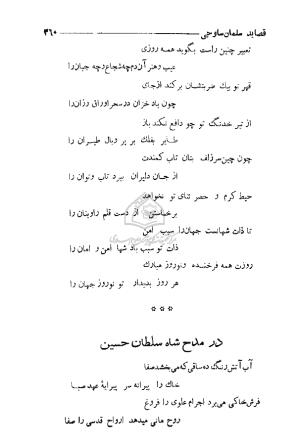 قصاید سلمان ساوجی ۳۶۰
تعبیر چنین راست بگوید همه روزی
عیب و هنر آن دم چه شجاع و چه جبان را
قهر تو بیك ضربتشان بر کند از جای
چون باد خزان در سحر اوراق رزان را
از تیر خدنگ تو چو دافع نکند باز
طایر بفلك بر پر و بال طیران را
چون چین سر زلف بتان تاب کمندت
از جان دلیران ببرد تاب و توان را
حیط کرم و حصر ثنای تو نخواهد
برخاستن از دست قلم راوینان را
تا ذات شهانست جهان را سبب امن
ذات تو سبب باد شها امن و امان را
روزت همه فرخنده و نوروز مبارك
هر روز بدیدار تو نوروز جهان را
* * *
در مدح شاه سلطان حسین
آب آتش رنگ ده ساقی که می بخشد صفا
خاك را پیرانه سر پیرایۀ عهد صبا
فرش خاکی میبرد اجرام علوی را فروغ
روح مانی میدهد ارواح قدسی را صفا